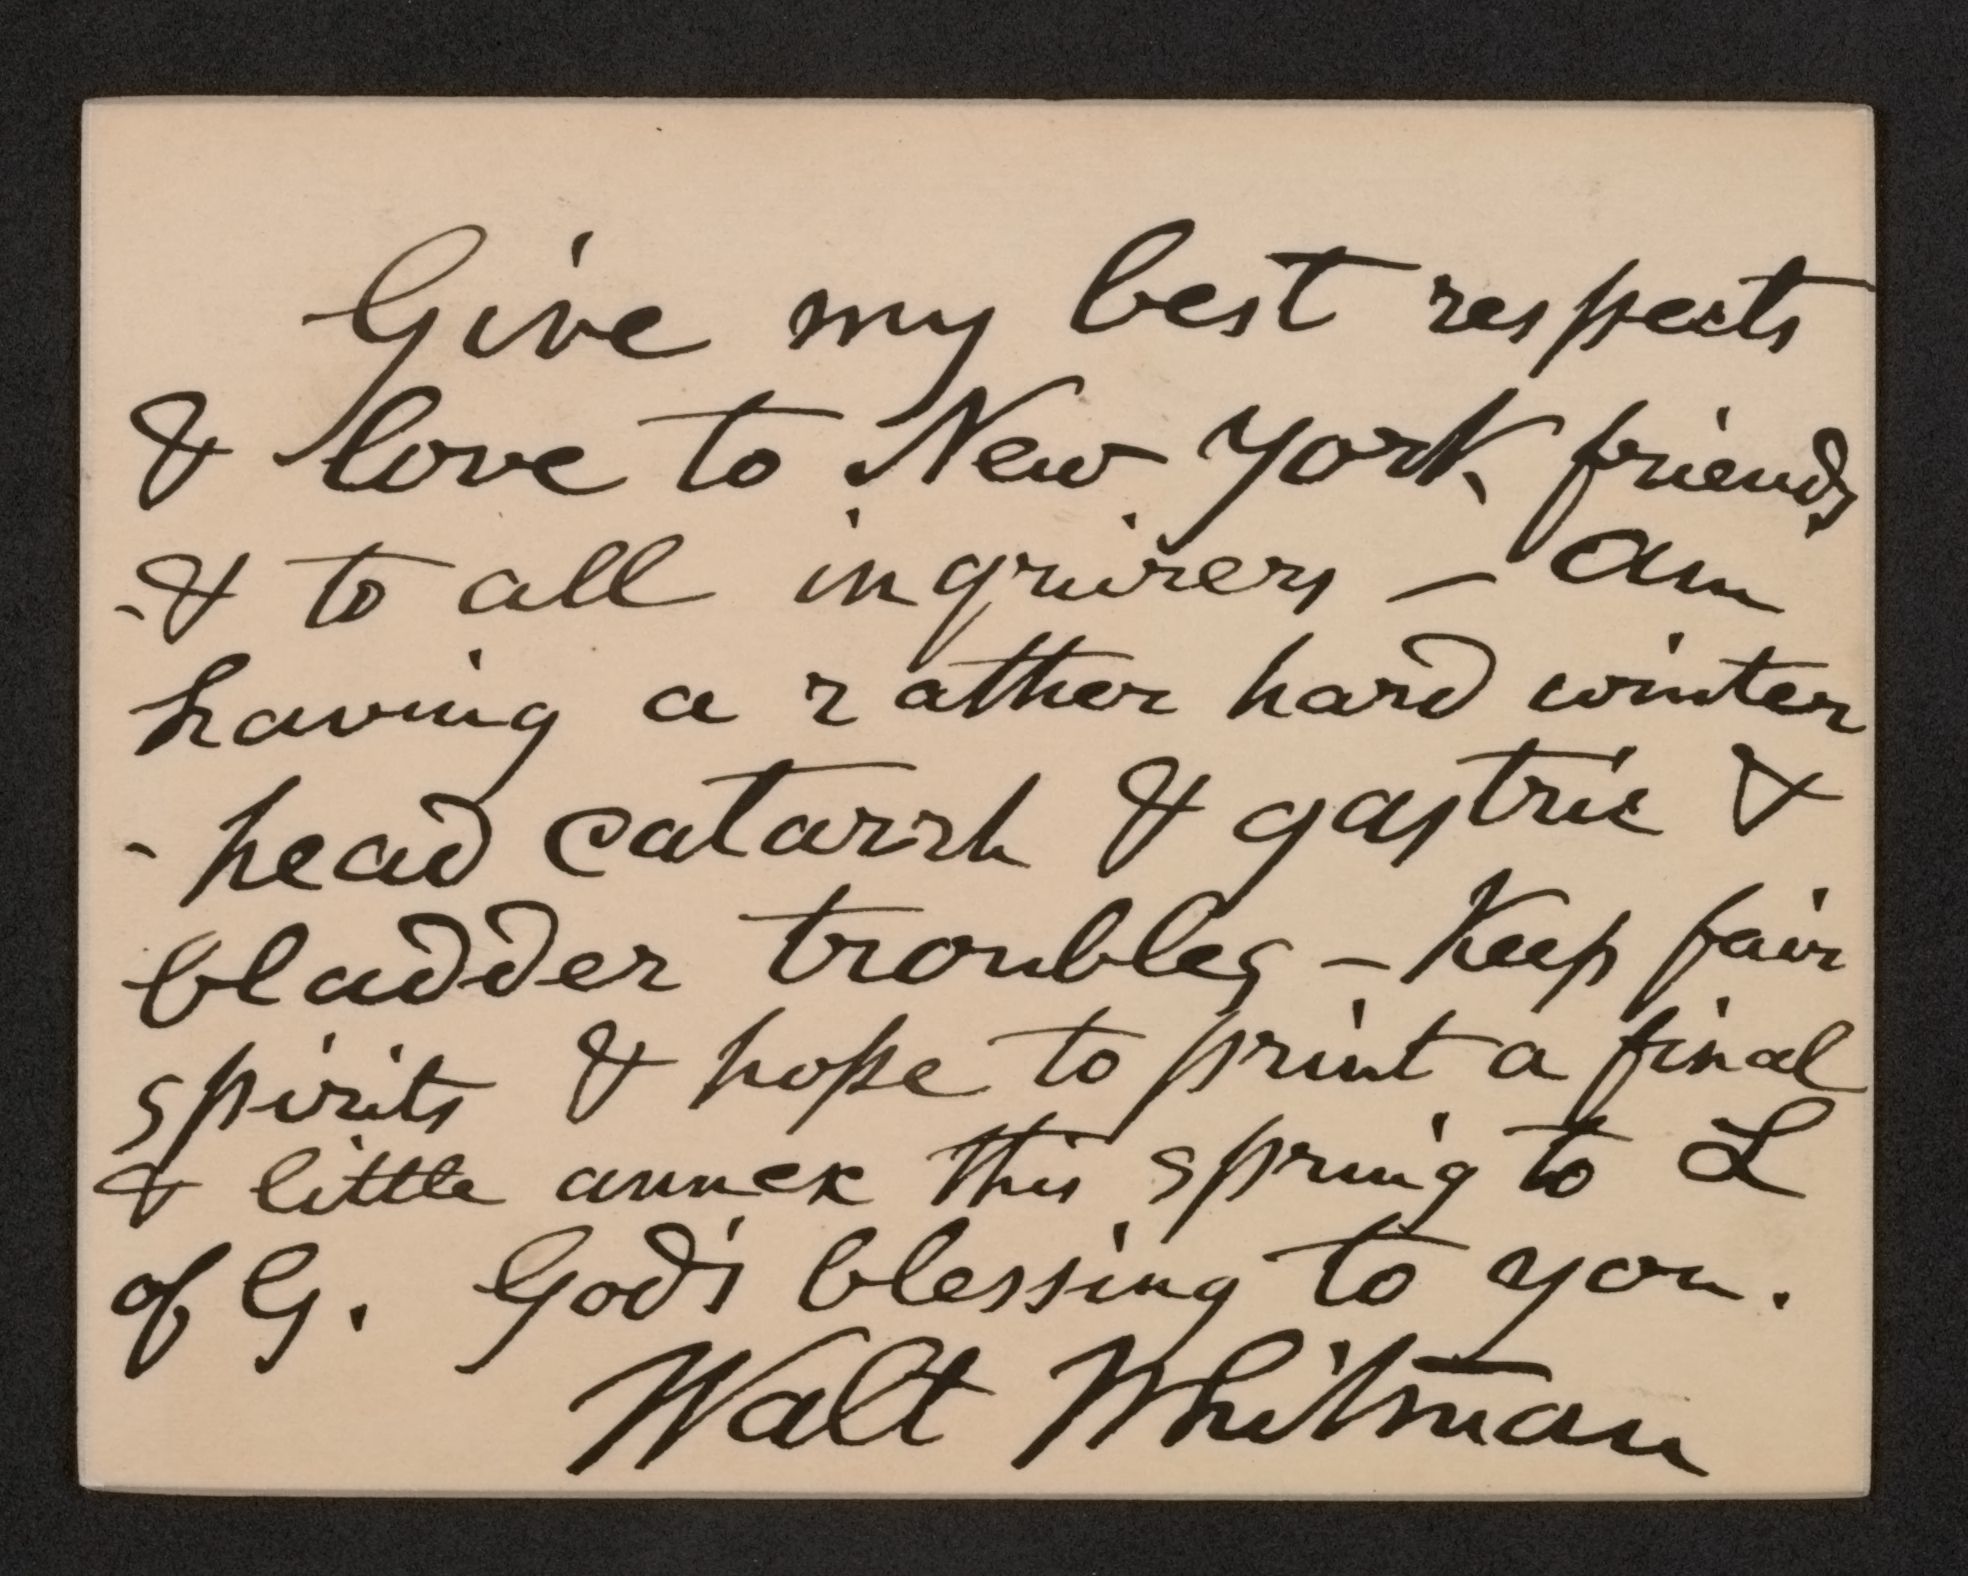 Give my best respects
& love to New York friends
- & to all inquirers — Am
having a rather hard winter
- head catarrh & gastric &
bladder troubles — Keep fair
spirits & hope to print a final
& little annex this spring to L
of G. God's blessing to you.
Walt Whitman